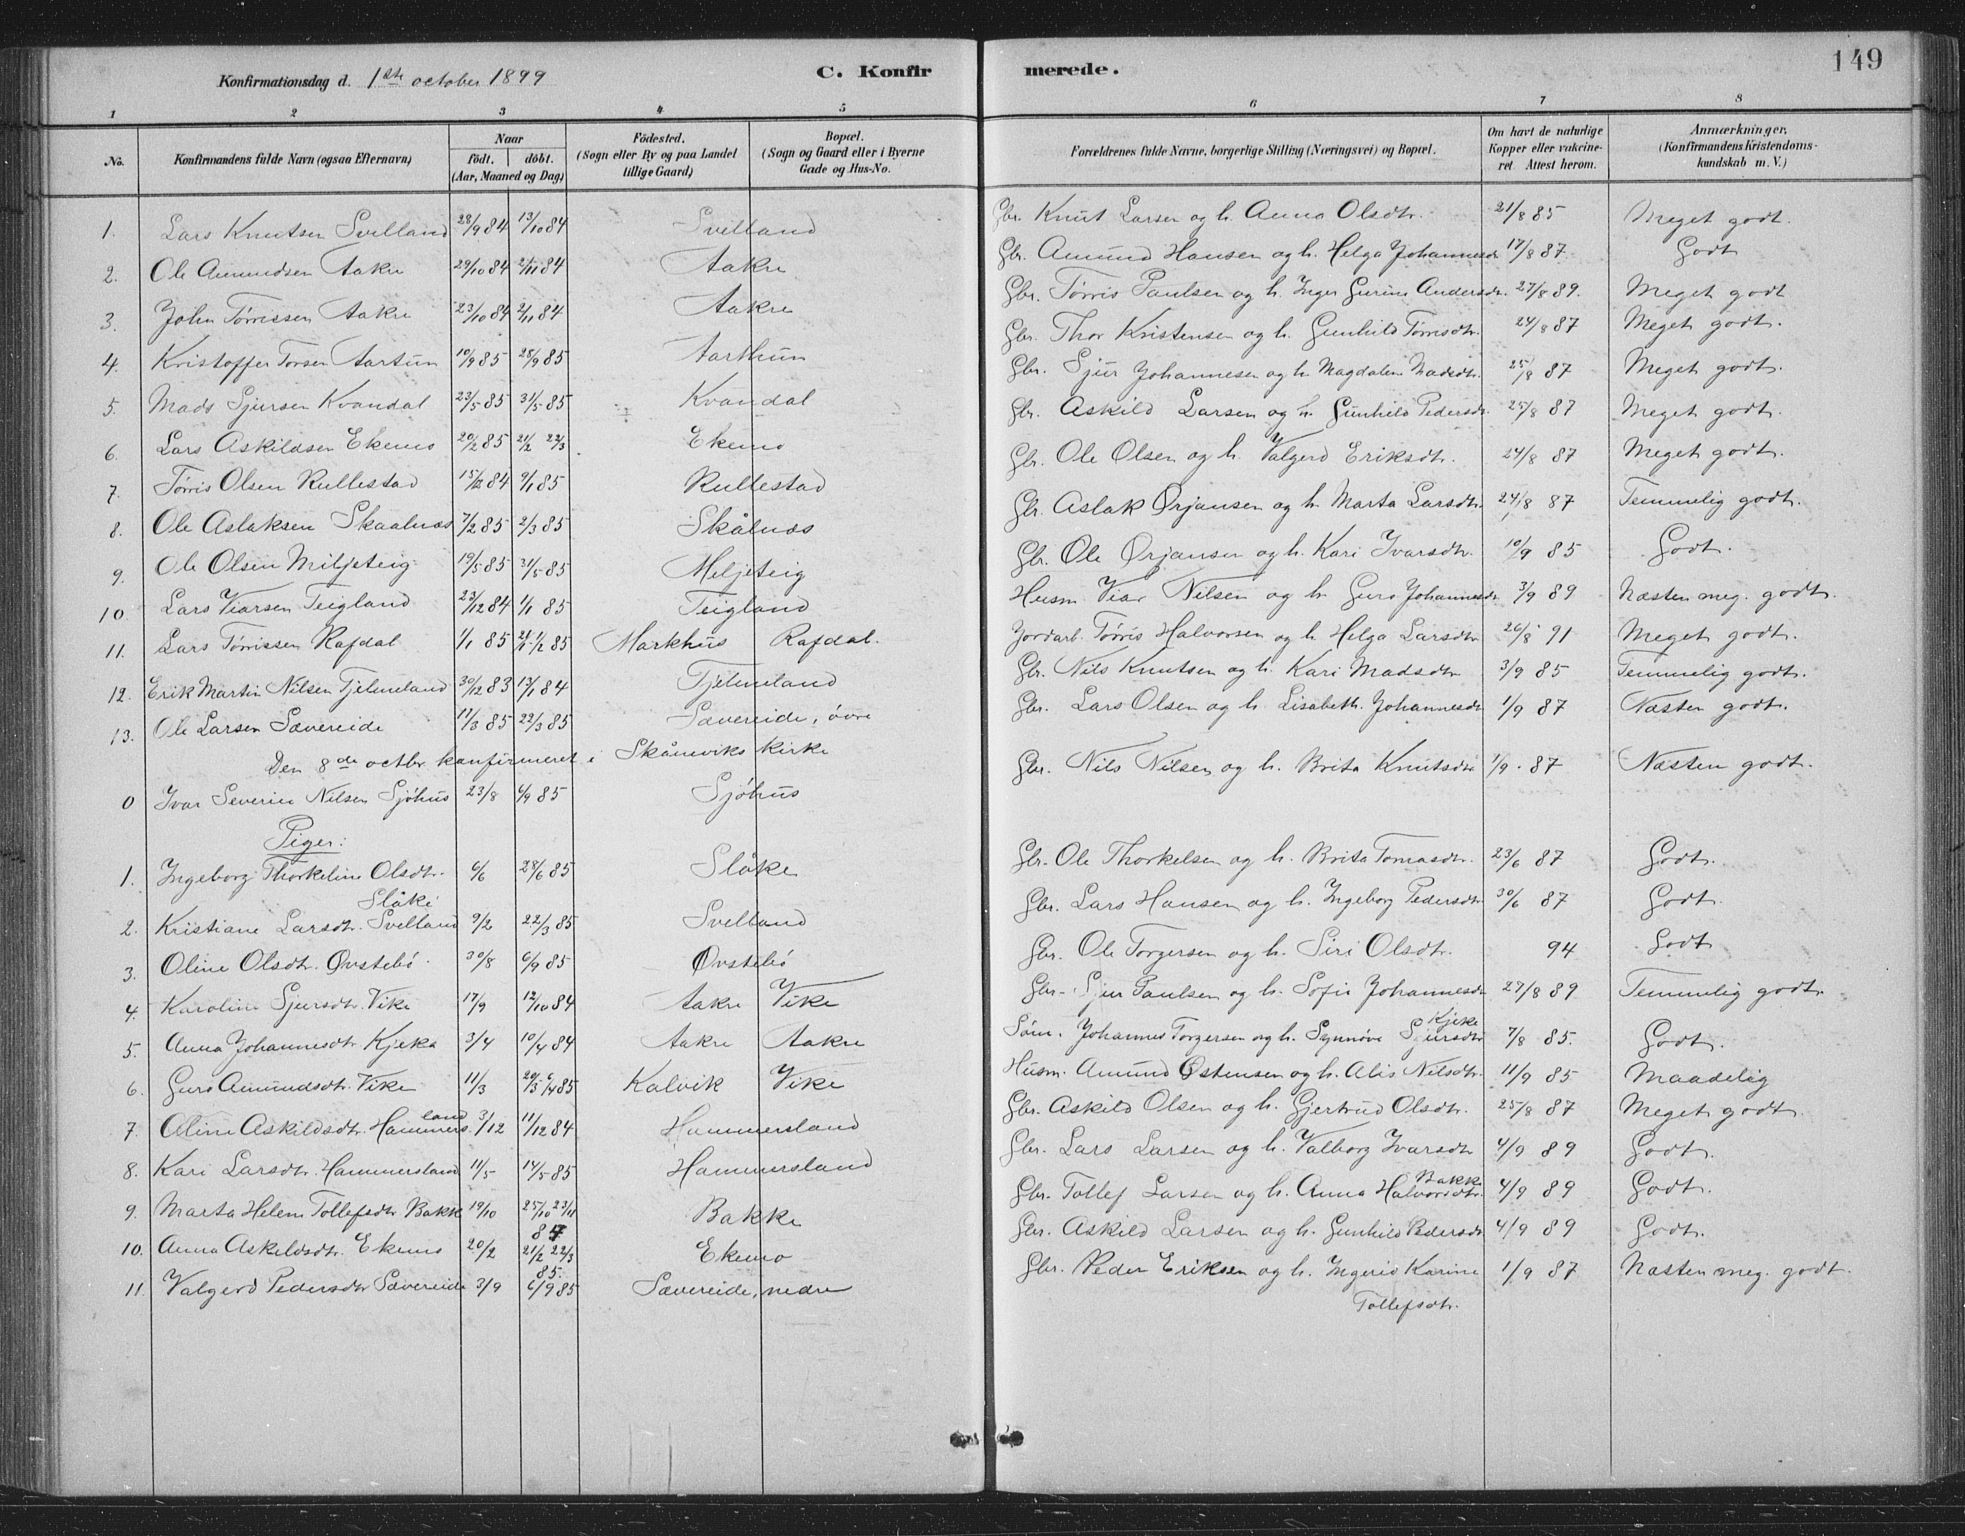 149
Konfirmationsdag d. 1ste october 1899 C. Konfirmerede.
1 2 3 4 5 6 7 8
No. Konfirmandens fulde Navn (ogsaa Efternavn) Naar født. døbt. (Aar, Maaned og Dag) Födested. (Sogn eller By og paa Landet tillige Gaard) Bopæl. (Sogn og Gaard eller i Byerne Gade og Hus-No. Forældrenes fulde Navne, borgerlige Stilling (Næringsvei) og Bopæl. Om havt de naturlige Kopper eller vakcineret. Attest herom. Anmærkninger. (Konfirmandens Kristendomskundskab m. V.)
1. Lars Knutsen Svelland 28/9 84 13/10 84 Svelland Gbr. Knut Larsen og h. Anna Olsdtr. 21/8 85 Meget godt.
2. Ole Amundsen Aakre 29/10 84 2/11 84 Aakre Gbr. Amund Hansen og h. Helga Johannesdr. 17/8 87 Godt
3. John Tørrissen Aakre 23/10 84 2/11 84 Aakre Gbr. Tørris Paulsen og h. Inger Gurine Andersdr. 27/8 89. Meget godt
4. Kristoffer Torsen Aartun 10/9 85 28/9 85 Aarthun Gbr. Thor Kristensen og h. Gunhild Tørrisdtr. 24/8 87 Meget godt.
5. Mads Sjursen Kvandal 23/5 85 31/5 85 Kvandal Gbr. Sjur Johannesen og h. Magdalena Madsdtr. 25/8 87 Meget godt.
6. Lars Askildsen Ekemo 20/2 85 21/2 22/3 Ekemo Gbr. Askild Larsen og h. Gunhild Pedersdr. 25/8 87 Meget godt.
7. Tørris Olsen Rullestad 15/12 84 9/1 85 Rullestad Gbr. Ole Olsen og h. Valgerd Eriksdtr. 24/8 87 Meget godt.
8. Ole Aslaksen Skaalnæs 7/2 85 2/3 85 Skålnæs Gbr. Aslak Ørjansen og h. Marta Larsdtr. 24/8 87 Temmelig godt.
9. Ole Olsen Miljeteig 19/5 85 31/5 85 Meljeteig Gbr. Ole Ørjansen og h. Kari Ivarsdtr. 10/9 85 Godt.
10. Lars Viarsen Teigland 23/12 84 1/1 85 Teigland Husm. Viar Nilsen og h. Guro Johannesdr. 3/9 89 Næsten meg. godt.
11. Lars Tørrissen Rafdal 1/1 85 21/1 1/2 85 Markhus Rafdal. Jordarb. Tørris Halvorsen og h. Helga Larsdtr. 26/8 91 Meget godt.
12. Erik Martin Nilsen Tjelmeland 30/12 83 13/1 84 Tjelmeland Gbr. Nils Knutsen og h. Kari Madsdtr 3/9 85 Temmelig godt.
13. Ole Larsen Sævereide 17/3 85 22/3 85 Sævereide, øvre Gbr. Lars Olsen og h. Lisabeth. Johannesdr 1/9 87 Næsten godt.
Den 8de octbr konfirmeret i Skåneviks Kirke
0 Ivar Severin Nilsen Sjøhus 23/8 6/9 85 Sjøhus Gbr. Nils Nilsen og h. Brita Knutsdtr 1/9. 87 Næsten godt.
Piger:
1. Ingeborg Thorkeline Olsdtr. Slåke 6/6 28/6 85 Slåke Gbr. Ole Thorkelsen og h. Brita Tomasdtr. 23/6 87 Godt.
2. Kristiane Larsdtr. Svelland 9/2 22/3 85 Svelland Gbr. Lars Hansen og h. Ingeborg Pedersdtr 30/6 87 Godt.
3. Oline Olsdtr. Øvstebø 30/8 6/9 85 Øvstebø Gbr. Ole Torgersen og h. Siri Olsdtr. 94 Godt
4. Karoline Sjursdtr. Vike 17/9 12/10 84 Aakre Vike Gbr. Sjur Paulsen og h. Sofie Johannesdr 27/8 89 Temmelig godt.
5. Anna Johannesdtr Kjeka 3/4 10/4 84 Aakre Aakre Søm. Johannes Torgersen og h. Synnøve Sjursdtr Kjeke 7/8 85. Godt.
6. Guro Amundsdtr. Vike 11/3 20/3 6/4 85 Kalvik Vike Husm. Amund Østensen og h. Alis Nilsdtr. 11/9 85 Maadelig
7. Oline Askildsdtr. Hammersland 3/12 11/12 84 Hammersland Gbr. Askild Olsen og h. Gjertrud Olsdtr. 25/8 87 Meget godt.
8. Kari Larsdtr. Hammersland 11/5 14/5 85 Hammersland Gbr. Lars Larsen og h. Valborg Ivarsdtr 4/9 89 Godt.
9. Marta Helene Tollefsdtr Bakke 19/10 25/10 23/11 84 Bakke Gbr. Tollef Larsen og h. Anna Halvorsdtr. Bakke 4/9 89 Godt.
10. Anna Askildsdtr. Ekemo 20/2 21/2 22/3 85. Ekemo Gbr. Askild Larsen og h. Gunhild Pedersdr 4/9 89 Godt.
11. Valgerd Pedersdtr Sævereide 3/9 6/9 85 Sævereide, nedre Gbr. Peder Eriksen og h. Ingerid Karine Tollefsdtr. 1/9 87 Næsten meg. godt.